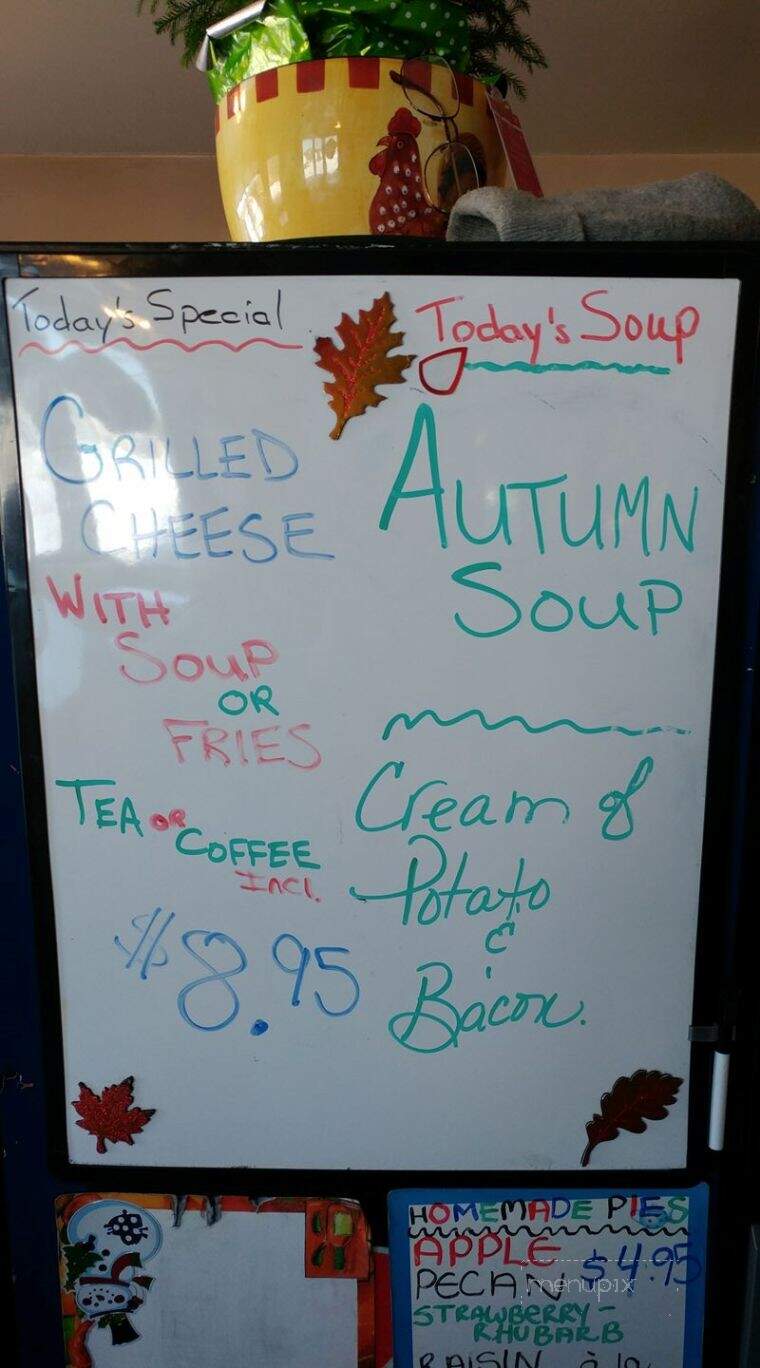 Today's Special
GRILLED
CHEESE
WITH
SOUP
OR
FRIES
TEA OR
COFFEE
INCL.
$8.95
Today's Soup
AUTUMN
SOUP
Cream of
Potato
&
Bacon.
HOMEMADE PIES
APPLE
$4.95
PECAN
menupix
STRAWBERRY-
RHUBARB
RAISIN à la